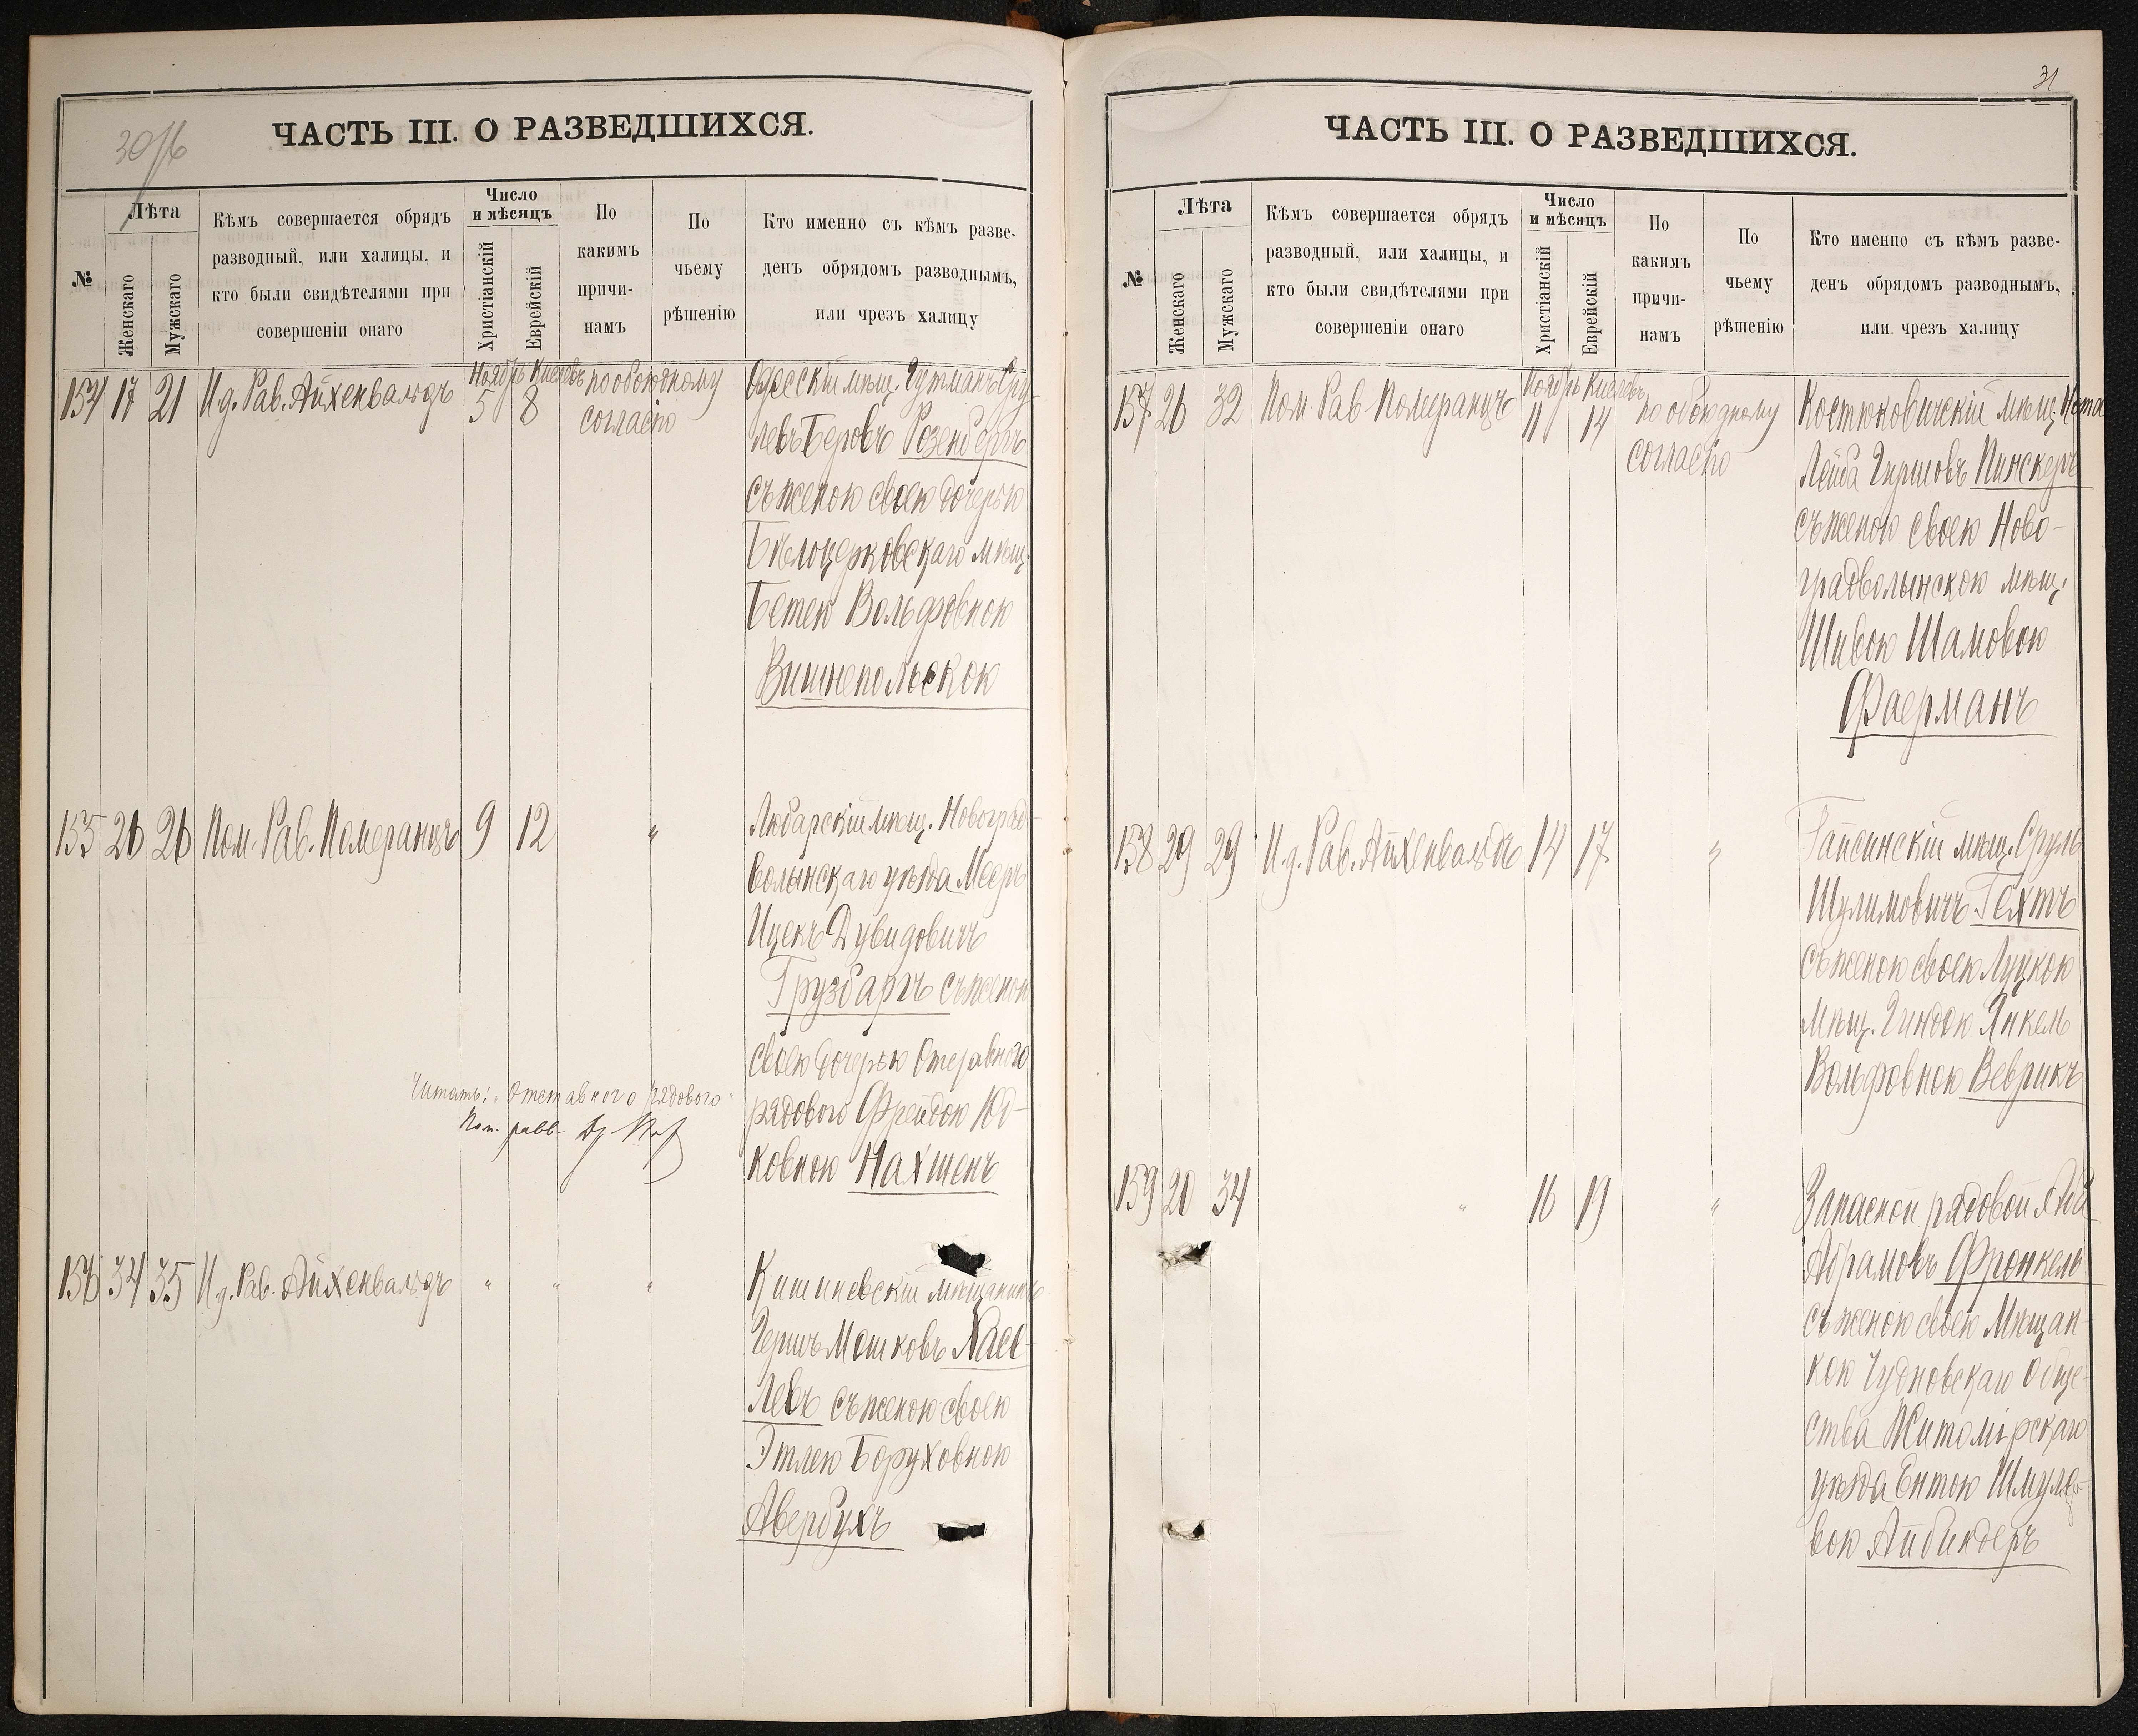 30/16
ЧАСТЬ III. О РАЗВЕДШИХСЯ.
№
Лѣта
Женскаго
Мужскаго
Кѣмъ совершается обрядъ
разводный, или халицы, и
кто были свидѣтелями при
совершеніи онаго
Число
и мѣсяцъ
Христіанскій
Еврейскій
По
какимъ
причи-
намъ
По
чьему
рѣшенію
Кто именно съ кѣмъ разве-
денъ обрядомъ разводнымъ,
или чрезъ халицу
154 17 21 И.д. Рав. Айхенвальдъ
Ноябрь Кислевъ
5 8
по обоюдному
согласію
Одесскій мѣщ. Гутманъ Сру-
левъ Беровъ Розенбергъ
съ женою своею дочерью
Бѣлоцерковскаго мѣщ.
Бетею Вольфовною
Вишнепольскою
155 26 26 Пом. Рав. Померанцъ 9 12 "
Любарскій мѣщ. Новоград-
волынскаго уѣзда Мееръ
Ицекъ Дувидовичъ
Грузбаргъ съ женою
своею дочерью Отеравного
рядового Фрейдою Юд-
ковною Нахшенъ
Читать: "Отставного рядового"
Пом. равв-
156 34 35 И.д. Рав. Айхенвальдъ " " "
Кишиневскій мѣщанинъ
Гершъ Мошковъ Хаев-
Левъ съ женою своею
Этлею Боруховною
Авербухъ
31
ЧАСТЬ III. О РАЗВЕДШИХСЯ.
№
Лѣта
Женскаго
Мужскаго
Кѣмъ совершается обрядъ
разводный, или халицы, и
кто были свидѣтелями при
совершеніи онаго
Число
и мѣсяцъ
Христіанскій
Еврейскій
По
какимъ
причи-
намъ
По
чьему
рѣшенію
Кто именно съ кѣмъ разве-
денъ обрядомъ разводнымъ,
или чрезъ халицу
157 26 32 Пом. Рав Померанцъ
Ноябрь Кислевъ
11 14
по обоюдному
согласію
Костюковичскій мѣщ. Нота
Лейба Гиршовъ Пинскеръ
съ женою своею Ново-
градволынскою мѣщ.
Шивою Шамовою
Фаерманъ
158 29 29 И.д. Рав. Айхенвальдъ 14 17 "
Гайсинскій мѣщ. Сруль
Шулимовичъ Гехтъ
съ женою своею Луцкою
мѣщ. Гиндою Янкель
Вольфовною Веврикъ
159 20 34 " 16 19 "
Запасной рядовой
Абрамовъ Фронкель
съ женою своею Мѣщан-
кою Чудновскаго обще-
ства Житомірскаго
уѣзда Ентою Шмуле-
вою Айбиндеръ